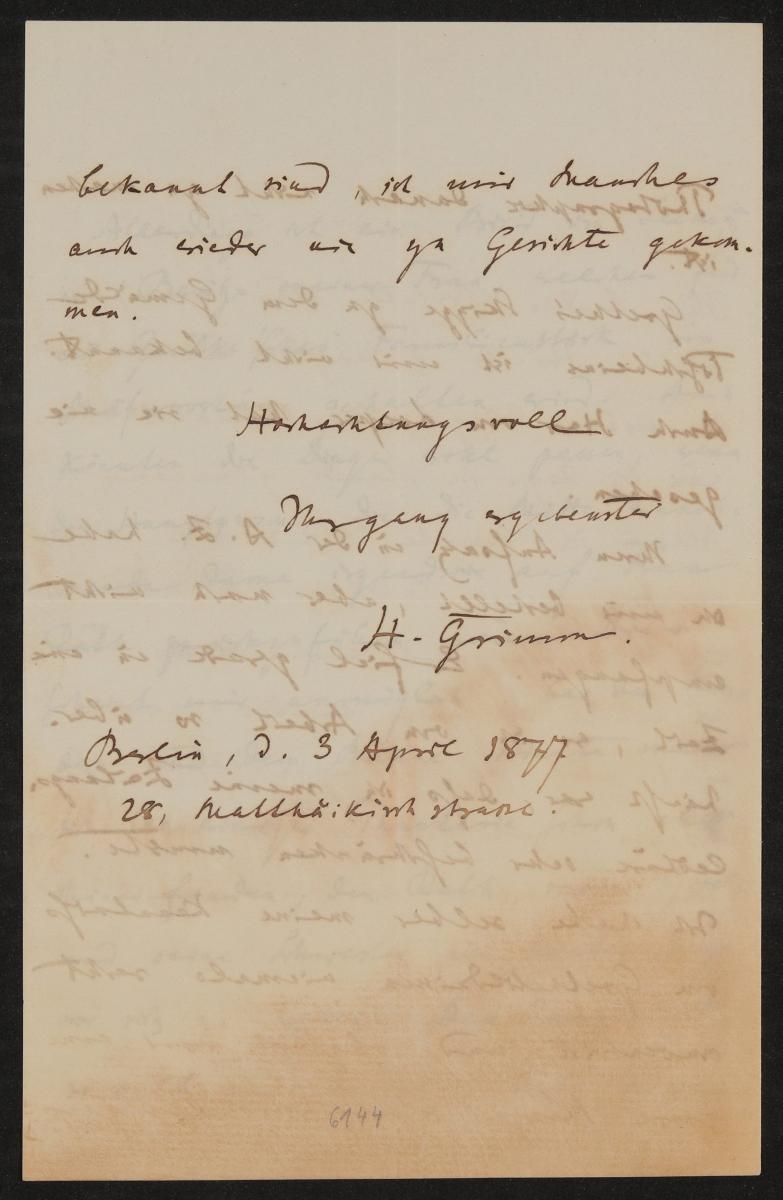 bekannt sind, ist mir Manches
auch wieder nie zu Gesichte gekom-
men.
Hochachtungsvoll
Ihr ganz ergebenster
H. Grimm.
Berlin, d. 3 April 1877
28, Matthäikirchstrasse.
6144